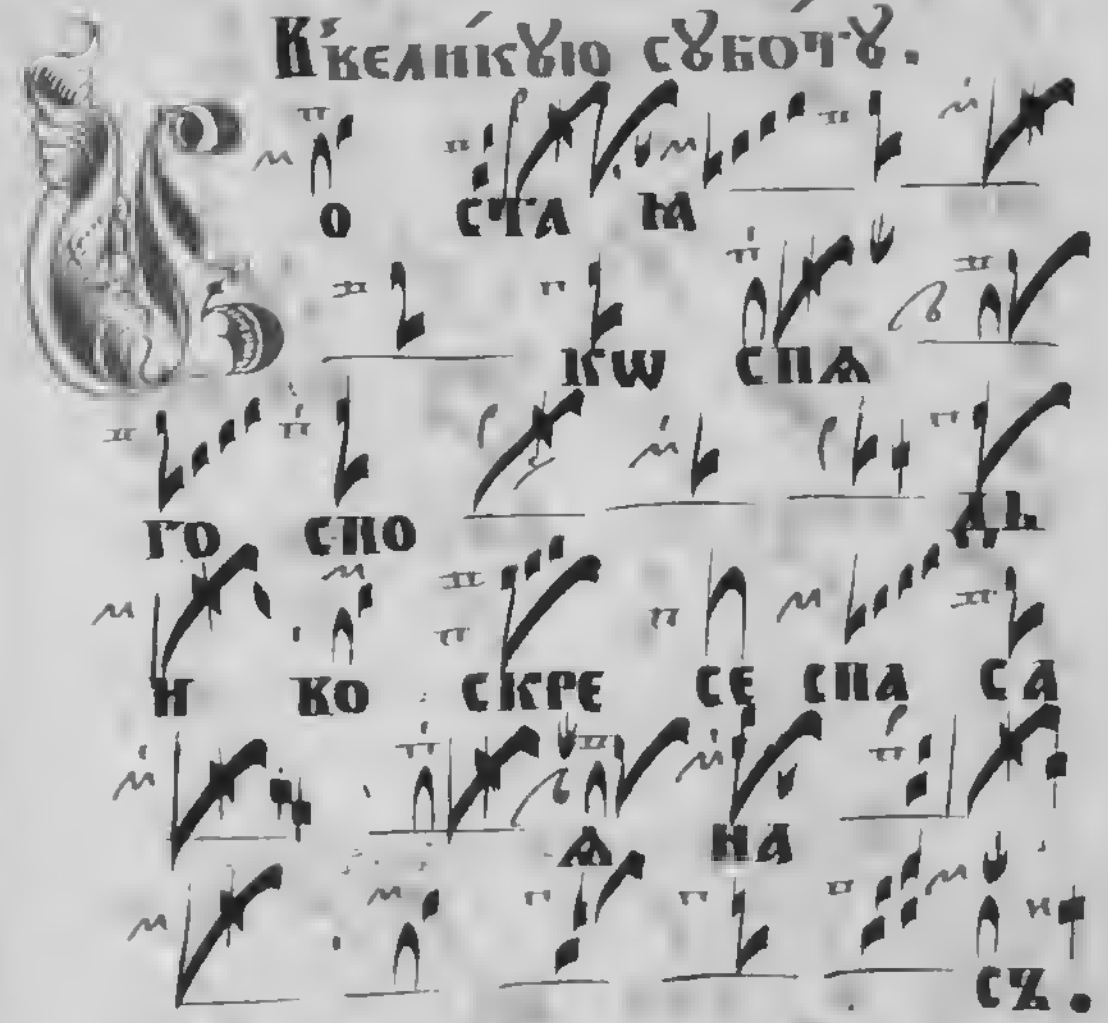 В̾ вели́кꙋю сꙋбо́тꙋ.
О СТА ꙖА
КѠ СПѦ
ГО СПО ДЬ
И ВО СКРЕ СЕ СПА СА
Ѧ НА
СЪ.